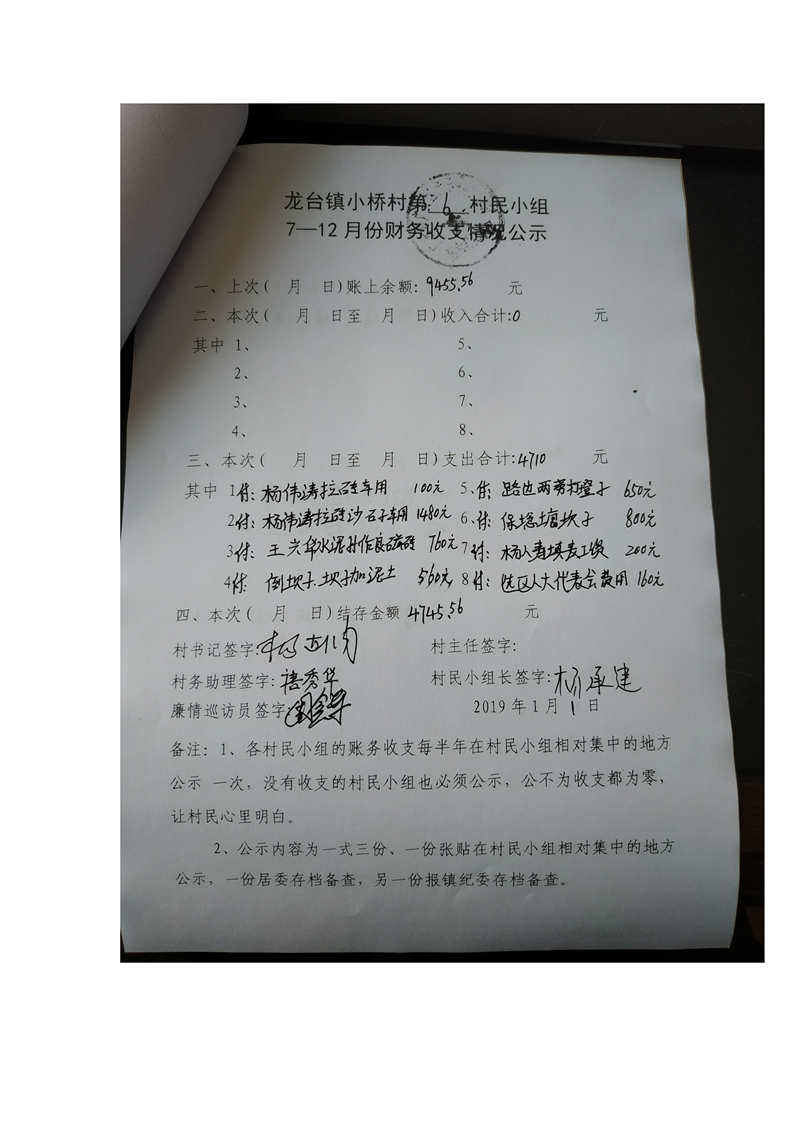 龙台镇小桥村第 6 村民小组
7—12月份财务收支情况公示
一、上次( 月 日)账上余额: 9455.56 元
二、本次( 月 日至 月 日)收入合计:0 元
其中 1、 5、
2、 6、
3、 7、
4、 8、
三、本次( 月 日至 月 日)支出合计:4710 元
其中 1付: 杨伟涛拉砖车用 100元 5、付: 路边两旁打 650元
2付: 杨伟涛拉砖沙石子车用 1480元 6、付: 保 塘坎子 800元
3付: 王兴华水泥 760元 7付: 杨 填麦工资 200元
4付: 倒坎子.坎子加泥土 560元, 8付: 选区人大代表会费用 160元
四、本次( 月 日)结存金额 4745.56 元
村书记签字: 杨 村主任签字:
村务助理签字: 秀华 村民小组长签字: 杨承建
廉情巡访员签字
2019年1月 1 日
备注: 1、各村民小组的账务收支每半年在村民小组相对集中的地方
公示 一次, 没有收支的村民小组也必须公示, 公不为收支都为零,
让村民心里明白。
2、公示内容为一式三份、一份张贴在村民小组相对集中的地方
公示, 一份居委存档备查, 另一份报镇纪委存档备查。